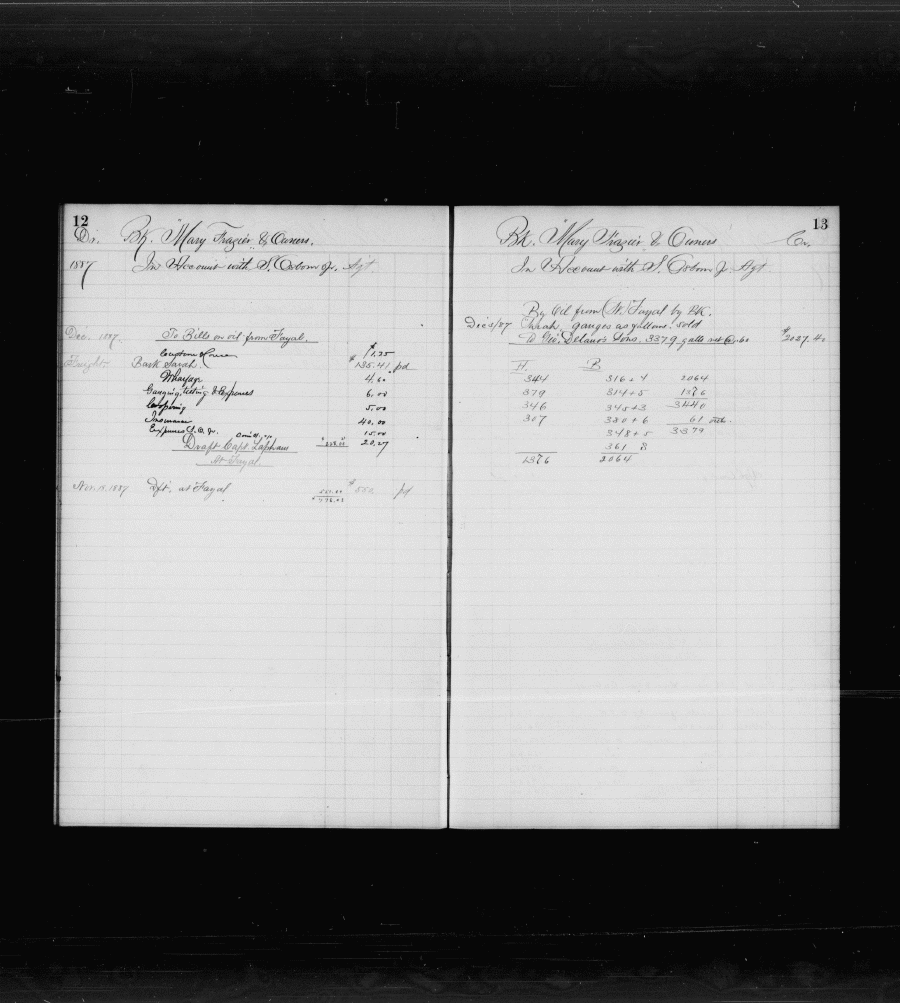 12
Dr. Bk. "Mary Frazier" & Owners.
1887 In Account with S. Osborn Jr. Agt.
Dec. 1887. To Bills on oil from Fayal.
Custom House $1.25
Freight. Bark Sarah. $135.41 pd
Wharfage 4.60
Gauging, testing & Expenses 6.00
Coopering 5.00
Insurance 40.00
Expenses S.O. Jr. 15.00
20.27
Draft Capt. Lapham
At Fayal.
Nov. 15. 1887 Dft. at Fayal $550 pd
13
Bk. "Mary Frazier" & Owners Cr.
In Account with S. Osborn Jr. Agt.
By Oil from (W.) Fayal by BK.
Dec 5/87 Sarah, gauges as follows. sold
To Geo. Delano's Sons. 3379 galls net @ .60 $2027.40
H. B
344 316+4 2064
379 314+5 1376
346 345+3 3440
307 380+6 61 outs.
348+5 3379
361 8
1376 2064